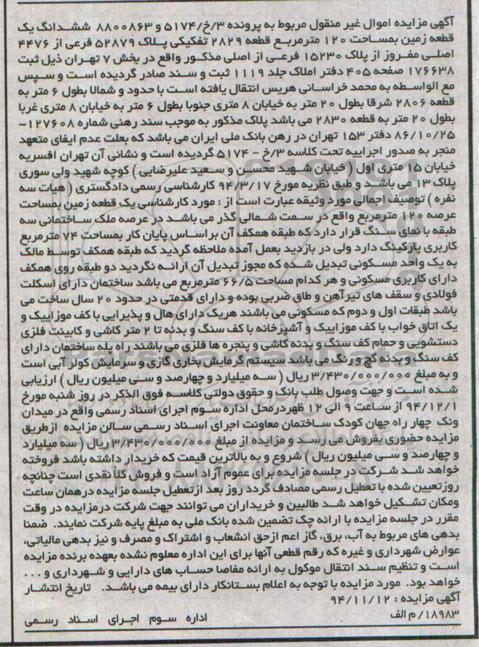 آگهی مزایده اموال غیر منقول مربوط به پرونده ۵۱۷۴/خ/۳ و ۸۸۰۰۸۶۳ ششدانگ یک
قطعه زمین بمساحت ۱۲۰ مترمربع قطعه ۲۸۲۹ تفکیکی پلاک ۵۲۸۷۹ فرعی از ۴۴۷۶
اصلی مفروز از پلاک ۱۵۲۳۰ فرعی از اصلی مذکور واقع در بخش ۷ تهران ذیل ثبت
۱۷۶۶۳۸ صفحه ۴۰۵ دفتر املاک جلد ۱۱۱۹ ثبت و سند صادر گردیده است و سپس
مع الواسطه به محمد خراسانی هریس انتقال یافته است با حدود شمالا بطول ۶ متر به
قطعه ۲۸۰۶ شرقا بطول ۲۰ متر به خیابان ۸ متری جنوبا بطول ۶ متر به خیابان ۸ متری غربا
بطول ۲۰ متر به قطعه ۲۸۳۰ می باشد پلاک مذکور به موجب سند رهنی شماره ۱۲۷۶۰۸-
۸۶/۱۰/۲۵ دفتر ۱۵۳ تهران در رهن بانک ملی ایران می باشد که بعلت عدم ایفای متعهد
منجر به صدور اجراییه تحت کلاسه ۳/خ - ۵۱۷۴ گردیده است و نشانی آن تهران افسریه
خیابان ۱۵ متری اول (خیابان شهید محسن و سعید علیرضایی) کوچه شهید ولی سوری
پلاک ۱۳ می باشد و طبق نظریه مورخ ۹۴/۳/۱۷ کارشناسی رسمی دادگستری (هیات سه
نفره) توصیف اجمالی مورد وثیقه عبارت است از: مورد کارشناسی یک قطعه زمین بمساحت
عرصه ۱۲۰ مترمربع واقع در سمت شمالی گذر می باشد در عرصه ملک ساختمانی سه
طبقه با نمای سنگ قرار دارد که طبقه همکف آن بر اساس پایان کار بمساحت ۷۴ مترمربع
کاربری پارکینگ دارد ولی در بازدید بعمل آمده ملاحظه گردید که طبقه همکف توسط مالک
به یک واحد مسکونی تبدیل شده که مجوز تبدیل آن ارائه نگردید دو طبقه روی همکف
دارای کاربری مسکونی و هر کدام مساحت ۶۶/۵ مترمربع می باشد ساختمان دارای اسکلت
فولادی و سقف های تیرآهن و طاق ضربی بوده و دارای قدمتی در حدود ۲۰ سال ساخت می
باشد طبقات اول و دوم که مسکونی می باشند هریک دارای هال و پذیرایی با کف موزاییک و
یک اتاق خواب با کف موزاییک و آشپزخانه با کف سنگ و بدنه تا ۲ متر کاشی و کابینت فلزی
دستشویی و حمام کف سنگ و بدنه کاشی و پنجره ها فلزی می باشند راه پله ساختمان دارای
کف سنگ و بدنه گچ و رنگ می باشد سیستم گرمایش بخاری گازی و سرمایش کولر آبی است
و به مبلغ ۳/۴۳۰/۰۰۰/۰۰۰ ریال (سه میلیارد و چهارصد و سی میلیون ریال) ارزیابی
شده است و جهت وصول طلب بانک و حقوق دولتی کلاسه فوق الذکر در روز شنبه مورخ
۹۴/۱۲/۱ از ساعت ۹ الی ۱۲ ظهر در محل اداره سوم اجرای اسناد رسمی واقع در میدان
ونک چهار راه جهان کودک ساختمان معاونت اجرای اسناد رسمی سالن مزایده ازطریق
مزایده حضوری بفروش می رسد و مزایده از مبلغ ۳/۴۳۰/۰۰۰/۰۰۰ ریال (سه میلیارد
و چهارصد و سی میلیون ریال) شروع و به بالاترین قیمت که خریدار داشته باشد فروخته
خواهد شد شرکت در جلسه مزایده برای عموم آزاد است و فروش کلاً نقدی است چنانچه
روز تعیین شده با تعطیل رسمی مصادف گردد روز بعد ازتعطیل جلسه مزایده درهمان ساعت
ومکان تشکیل خواهد شد طالبین و خریداران می توانند جهت شرکت درمزایده در وقت
مقرر در جلسه مزایده با ارائه چک تضمین شده بانک ملی به مبلغ پایه شرکت نمایند. ضمنا
بدهی های مربوط به آب، برق، گاز اعم ازحق انشعاب و اشتراک و مصرف و نیز بدهی مالیاتی،
عوارض شهرداری و غیره که رقم قطعی آنها برای این اداره معلوم نشده بعهده برنده مزایده
است و تنظیم سند انتقال موکول به ارائه مفاصا حساب های دارایی و شهرداری و ...
خواهد بود. مورد مزایده با توجه به اعلام بستانکار دارای بیمه می باشد. تاریخ انتشار
آگهی مزایده: ۹۴/۱۱/۱۲
۱۸۹۸۳/م الف اداره سوم اجرای اسناد رسمی